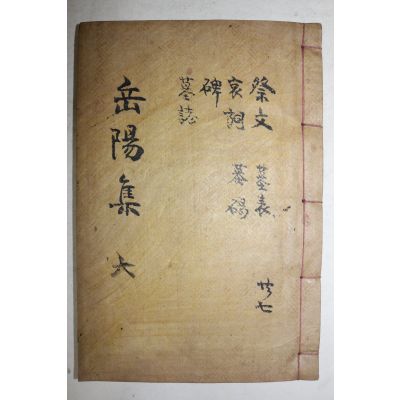 祭文 墓表 共七
哀詞 墓碣
碑
墓誌
岳陽集 六